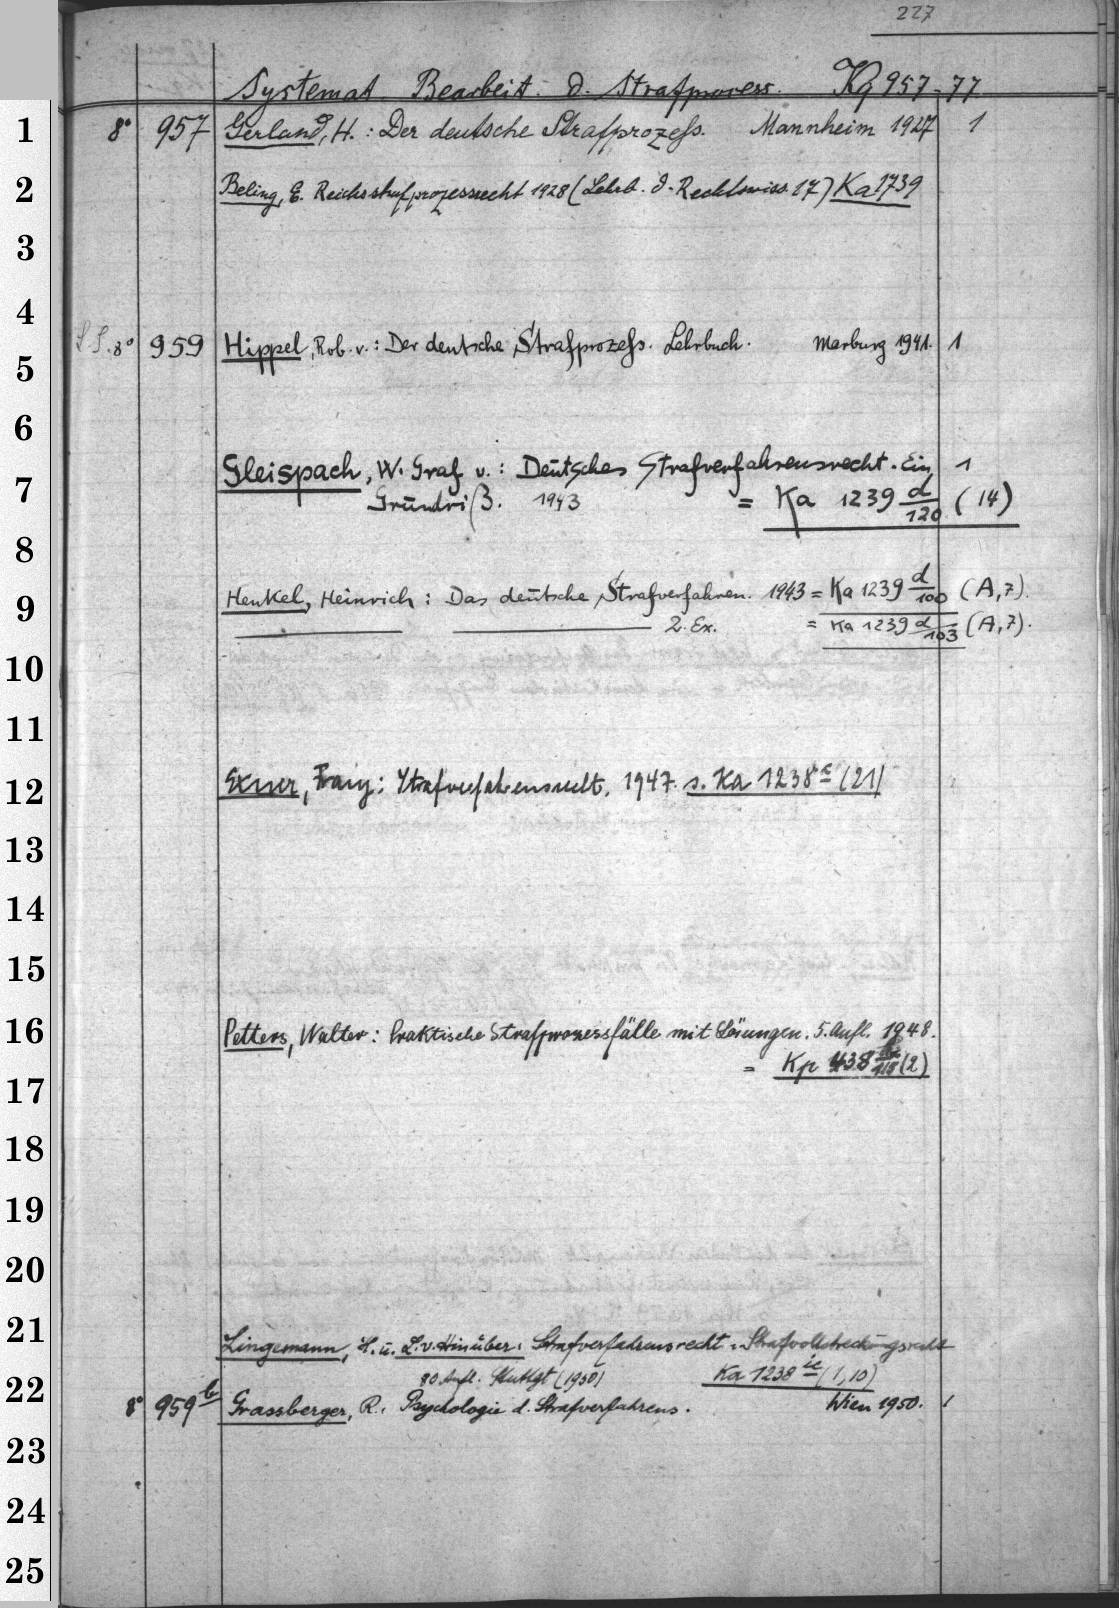 227
Systemat. Bearbeit. d. Strafprozess. Kq 957-77.
1 8° 957 Gerland, H.: Der deutsche Strafprozess. Mannheim 1927 1
2 Beling, E. Reichsstrafprozessrecht 1928 (Lehrb. d. Rechtswiss. 17) Ka 1739
3
4
8° 959 Hippel, Rob. v.: Der deutsche Strafprozess. Lehrbuch. Marburg 1941. 1
5
6
Gleispach, W. Graf v.: Deutsches Strafverfahrensrecht. Ein 1
7 Grundriß. 1943 = Ka 1239 d/120 (14)
8
9 Henkel, Heinrich: Das deutsche Strafverfahren. 1943 = Ka 1239 d/100 (A,7).
2. Ex. = Ka 1239 d/103 (A,7).
10
11
12 Exner, Franz: Strafverfahrensrecht. 1947. s. Ka 1238 c (21)
13
14
15
16 Petters, Walter: Praktische Strafprozessfälle mit Lösungen. 5. Aufl. 1948.
= Kp 438 (2)
17
18
19
20
21 Lingemann, H. u. L. v. Hinüber: Strafverfahrensrecht. Strafvollstreckungsrecht
22 80. Aufl. Stuttgt (1950) Ka 1238 ic (1,10)
8° 959 b Grassberger, R. Psychologie d. Strafverfahrens. Wien 1950. 1
23
24
25